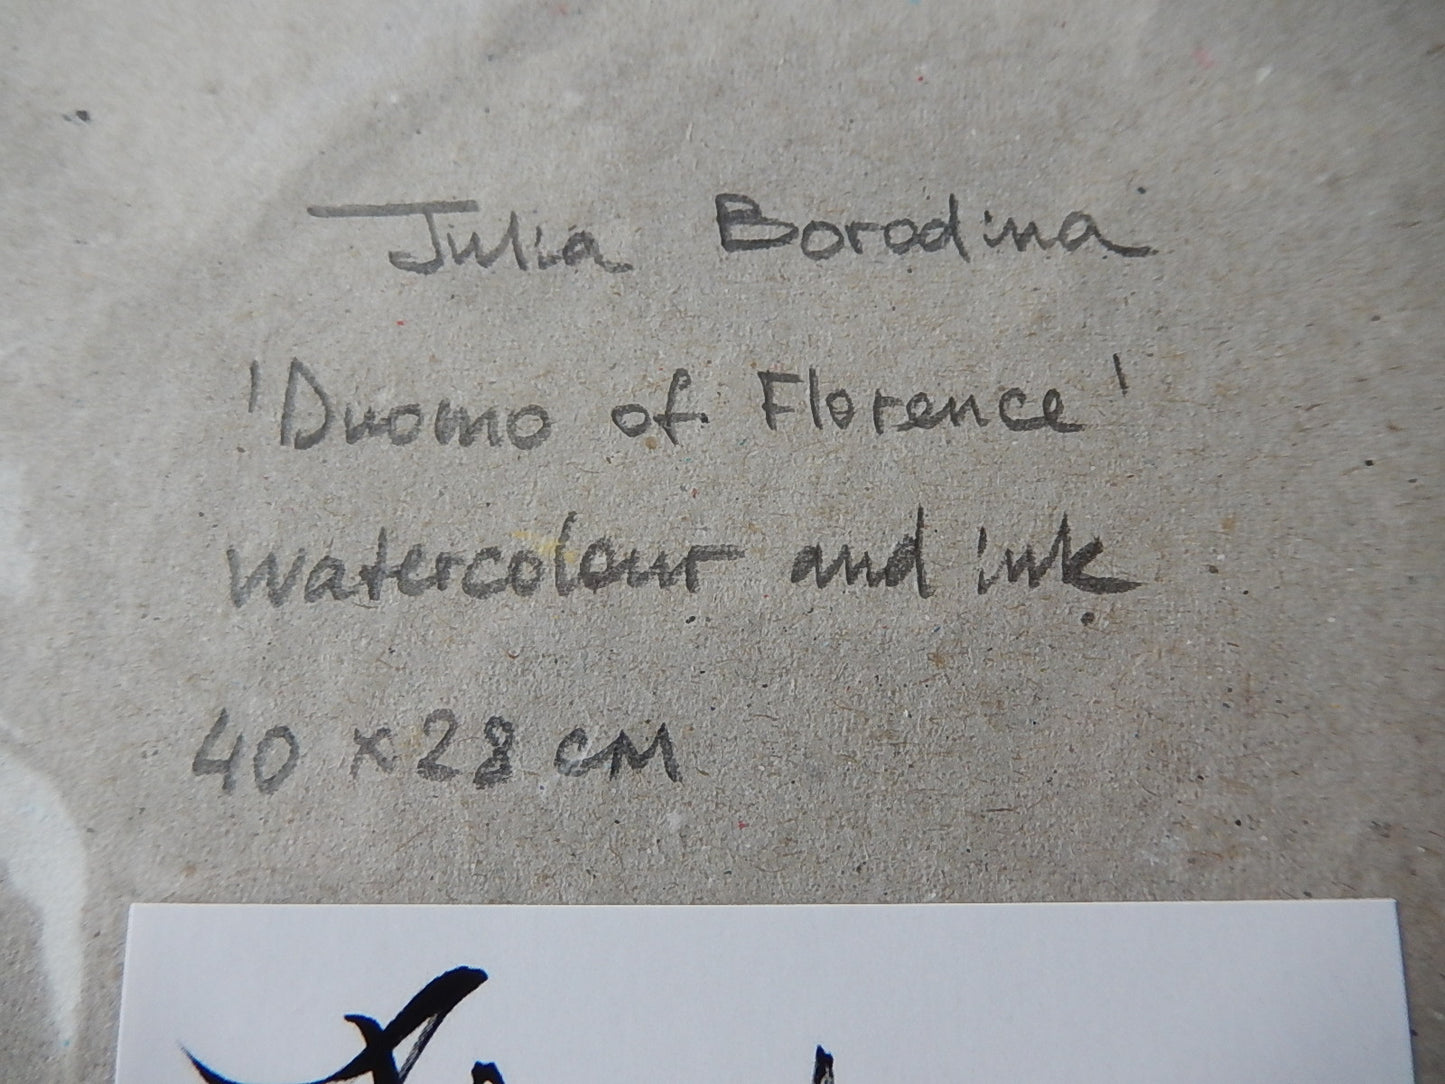 Julia Borodina
'Duomo of Florence'
watercolour and ink
40 x 28 cm